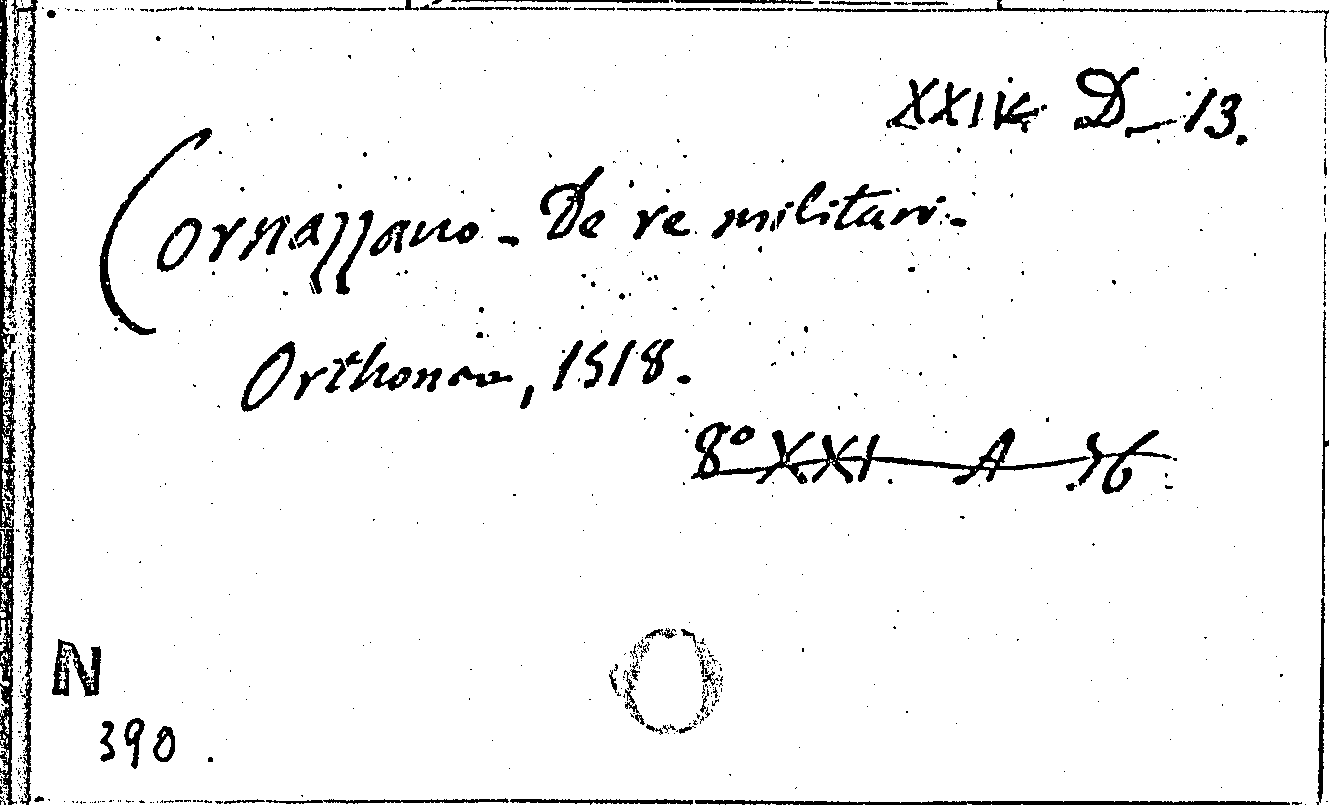 XXIV D-13.
Cornazzano - De re militari.
Orthonae, 1518.
8° XXI. A 36
N
390.